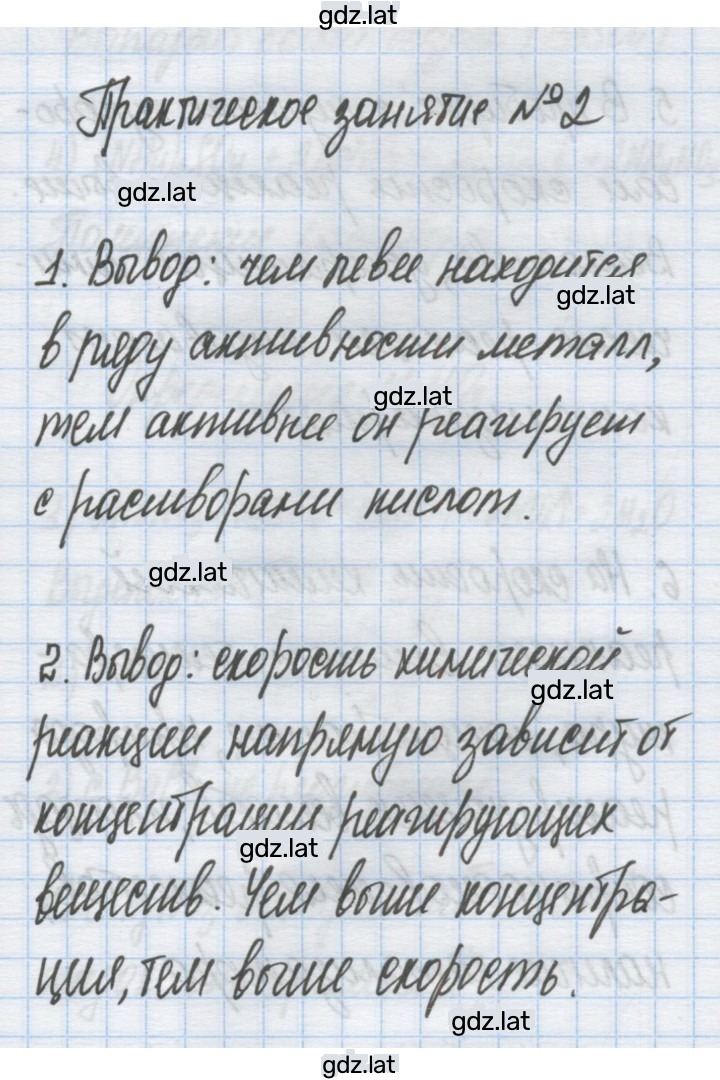 gdz.lat
Практическое занятие №2
gdz.lat
1. Вывод: чем левее находится
gdz.lat
в ряду активности металл,
gdz.lat
тем активнее он реагирует
с растворами кислот.
gdz.lat
2. Вывод: скорость химической
gdz.lat
реакции напрямую зависит от
концентрации реагирующих
gdz.lat
веществ. Чем выше концентра-
ция, тем выше скорость.
gdz.lat
gdz.lat